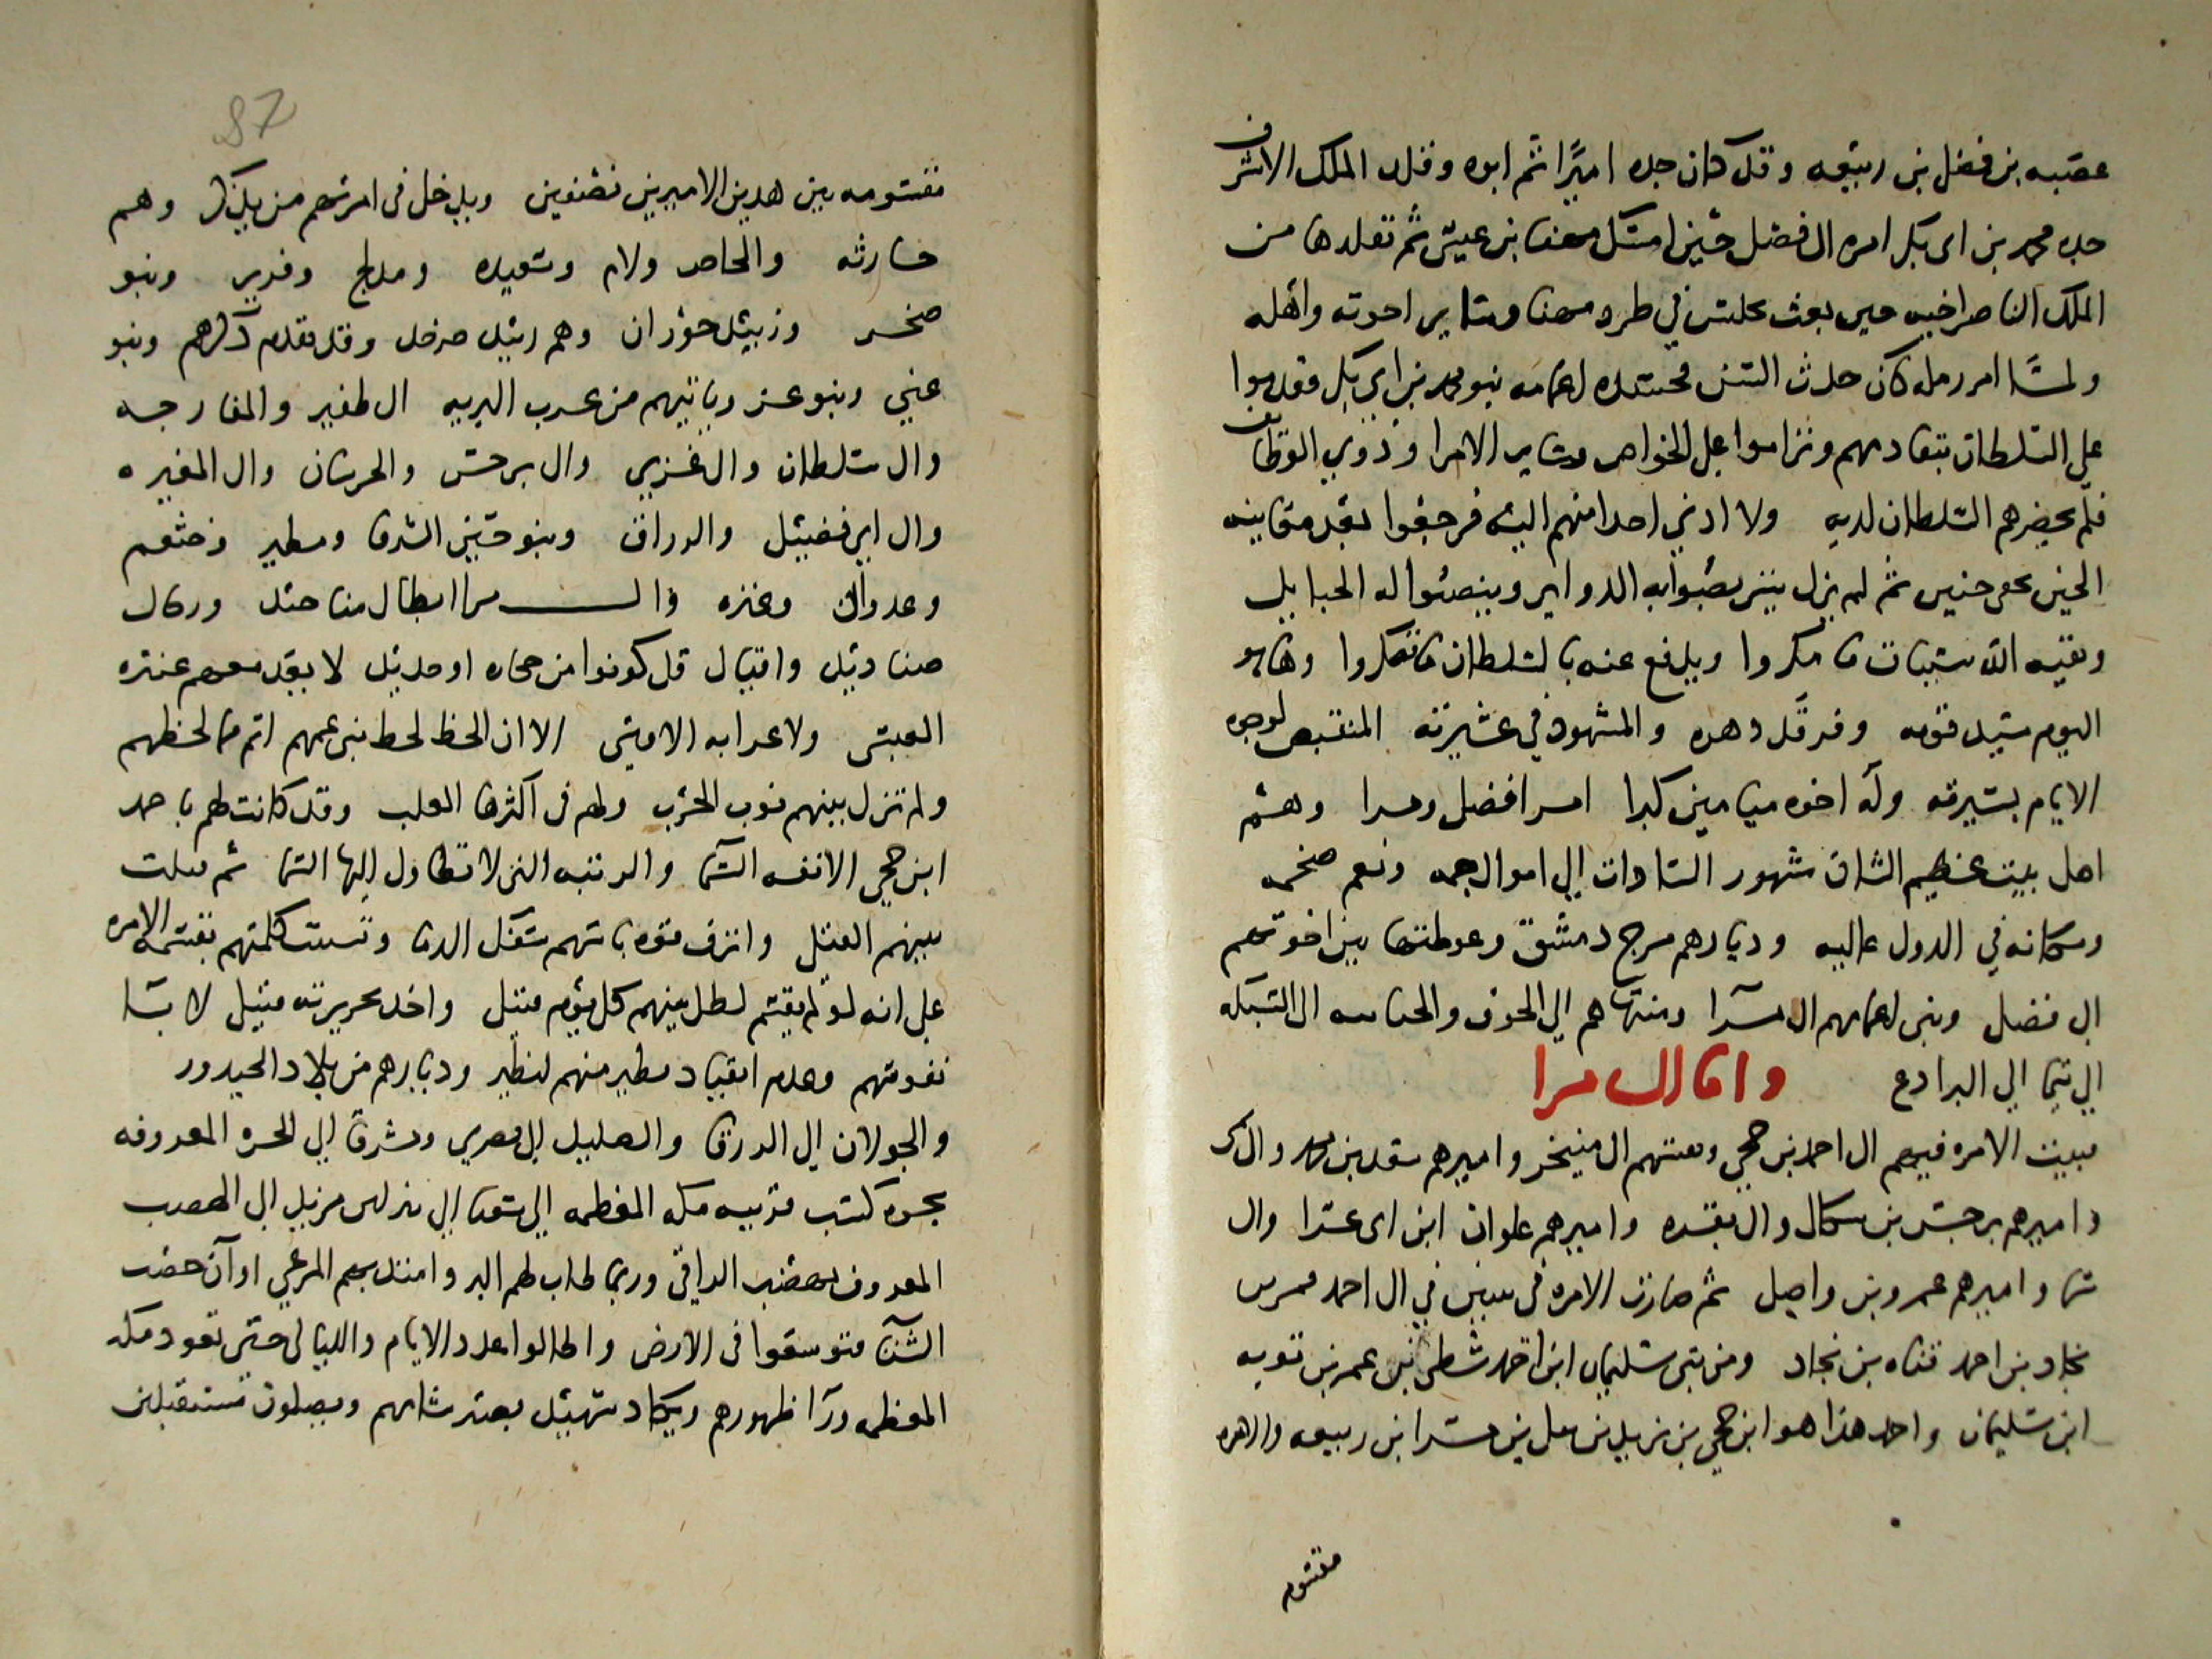 عقبه بن فضل بن ربيعه وقد كان جده اميرًا ثم ابوه وقلد الملك الاشرف
جده محمد بن ابى بكر امره ال فضل حين امسك مهنا بن عيسى ثم تقلدها من
الملك الناصر اخيه حين بعث في طرد مهنا وساير اخوته واهله
ولما امر رمله كان حدث السن فحسده اعمامه بنو محمد بن ابي بكر فقدموا
علي السلطان بتقادمهم وتراموا على الخواص وساير الامرا وذوي الوظايف
فلم يحضرهم السلطان لديه ولا ادنى احدا منهم اليه فرجعوا بعد معاينه
الحين بخفي حنين ثم لم يزل يتربصوا به الدواير وينصبوا له الحبايل
ويقيه الله سيئات ما مكروا ويدفع عنه بالسلطان ما تفكروا وها هو
اليوم سيد قومه وفرقد دهره والمشهود في عشيرته المنقبض لوجوه
الايام بسيرته وله اخوه ميامين كبرا امرا فضل ومرا وهم
اهل بيت عظيم الشان مشهور السادات الي اموال جمه ونعم ضخمه
ومكانه في الدول عاليه وديارهم مرج دمشق وغوطتها بين اخوتهم
ال فضل وبنى اعمامهم ال مرا ومنتهاهم الي الجوف والحيانيه الى الشبكه
الي تيما الي البرادع واما ال مرا
فبيت الامره فيهم ال احمد بن حجي وبقيتهم ال منيخر واميرهم سعد بن محمد وال
واميرهم برجس بن سكال وال بقره واميرهم علوان ابن ابى عرا وال
شما واميرهم عمرو بن واصل ثم صارت الامره في بيتين في ال احمد
نجاد بن احمد قناه بن نجاد ومن بنى سليمان ابن احمد شطى بن عمر بن توبه
ابن سليمان واحمد هذا هو ابن حجي بن يزيد بن شبل بن مرا ابن ربيعه والامره
مقسومه
87
مقسومه بين هدين الاميرين نصفين ويدخل فى امرتهم من يذكر وهم
حارثه والخاص ولام وسعيده ومدلج وقرير وبنو
صخر وزبيد حوران وهم زبيد صرخد وقد تقدم ذكرهم وبنو
غني وبنو عز وياتيهم من عرب البريه ال ظفير والمفارجه
وال سلطان وال غزي وال برجس والخرسان وال المغيره
وال ابي فضيل والزراق وبنو حسين الشرفا ومطير وخثعم
وعدوان وعنزه وال مرا ابطال مناجد ورجال
صناديد واقيال قل كونوا من حجاره او حديد لا يعد معهم عنتره
العبسى ولا عرابه الاوسى الا ان الحظ لحظ بنى عمهم اتم مما لحظهم
ولم تزل بينهم نوب الحرب ولهم فى اكثرها الغلب وقد كانت لهم باحمد
ابن حجي الانفه الشما والرتبه التي لا تطاول اليها السما ثم فلت
بينهم القتل وانزف قوه باسهم سفك الدما وتشتت كلمتهم بقسمه الامره
على انه لو لم يقسم لطل بينهم كل يوم قتيل واخد بجريرته قبيل لا باسا
نفوسهم وعدم انقياد نظير منهم لنظير وديارهم من بلاد الجيدور
والجولان الى الزرقا والضليل الى بصرى ومشرقا الى الحره المعروفه
بحره كشب قريبه مكه المعظمه الي شعبا الى نيران مزيد الى الهضب
المعروف بهضب الراقي وربما طاب لهم البر وامتد بهم المرعي اوان خصب
الشتا فتوسعوا فى الارض واطالوا عدد الايام والليالى حتى تعود مكه
المعظمه ورا ظهورهم ويكاد سهيل يصير شامهم ويصلون مستقبلين